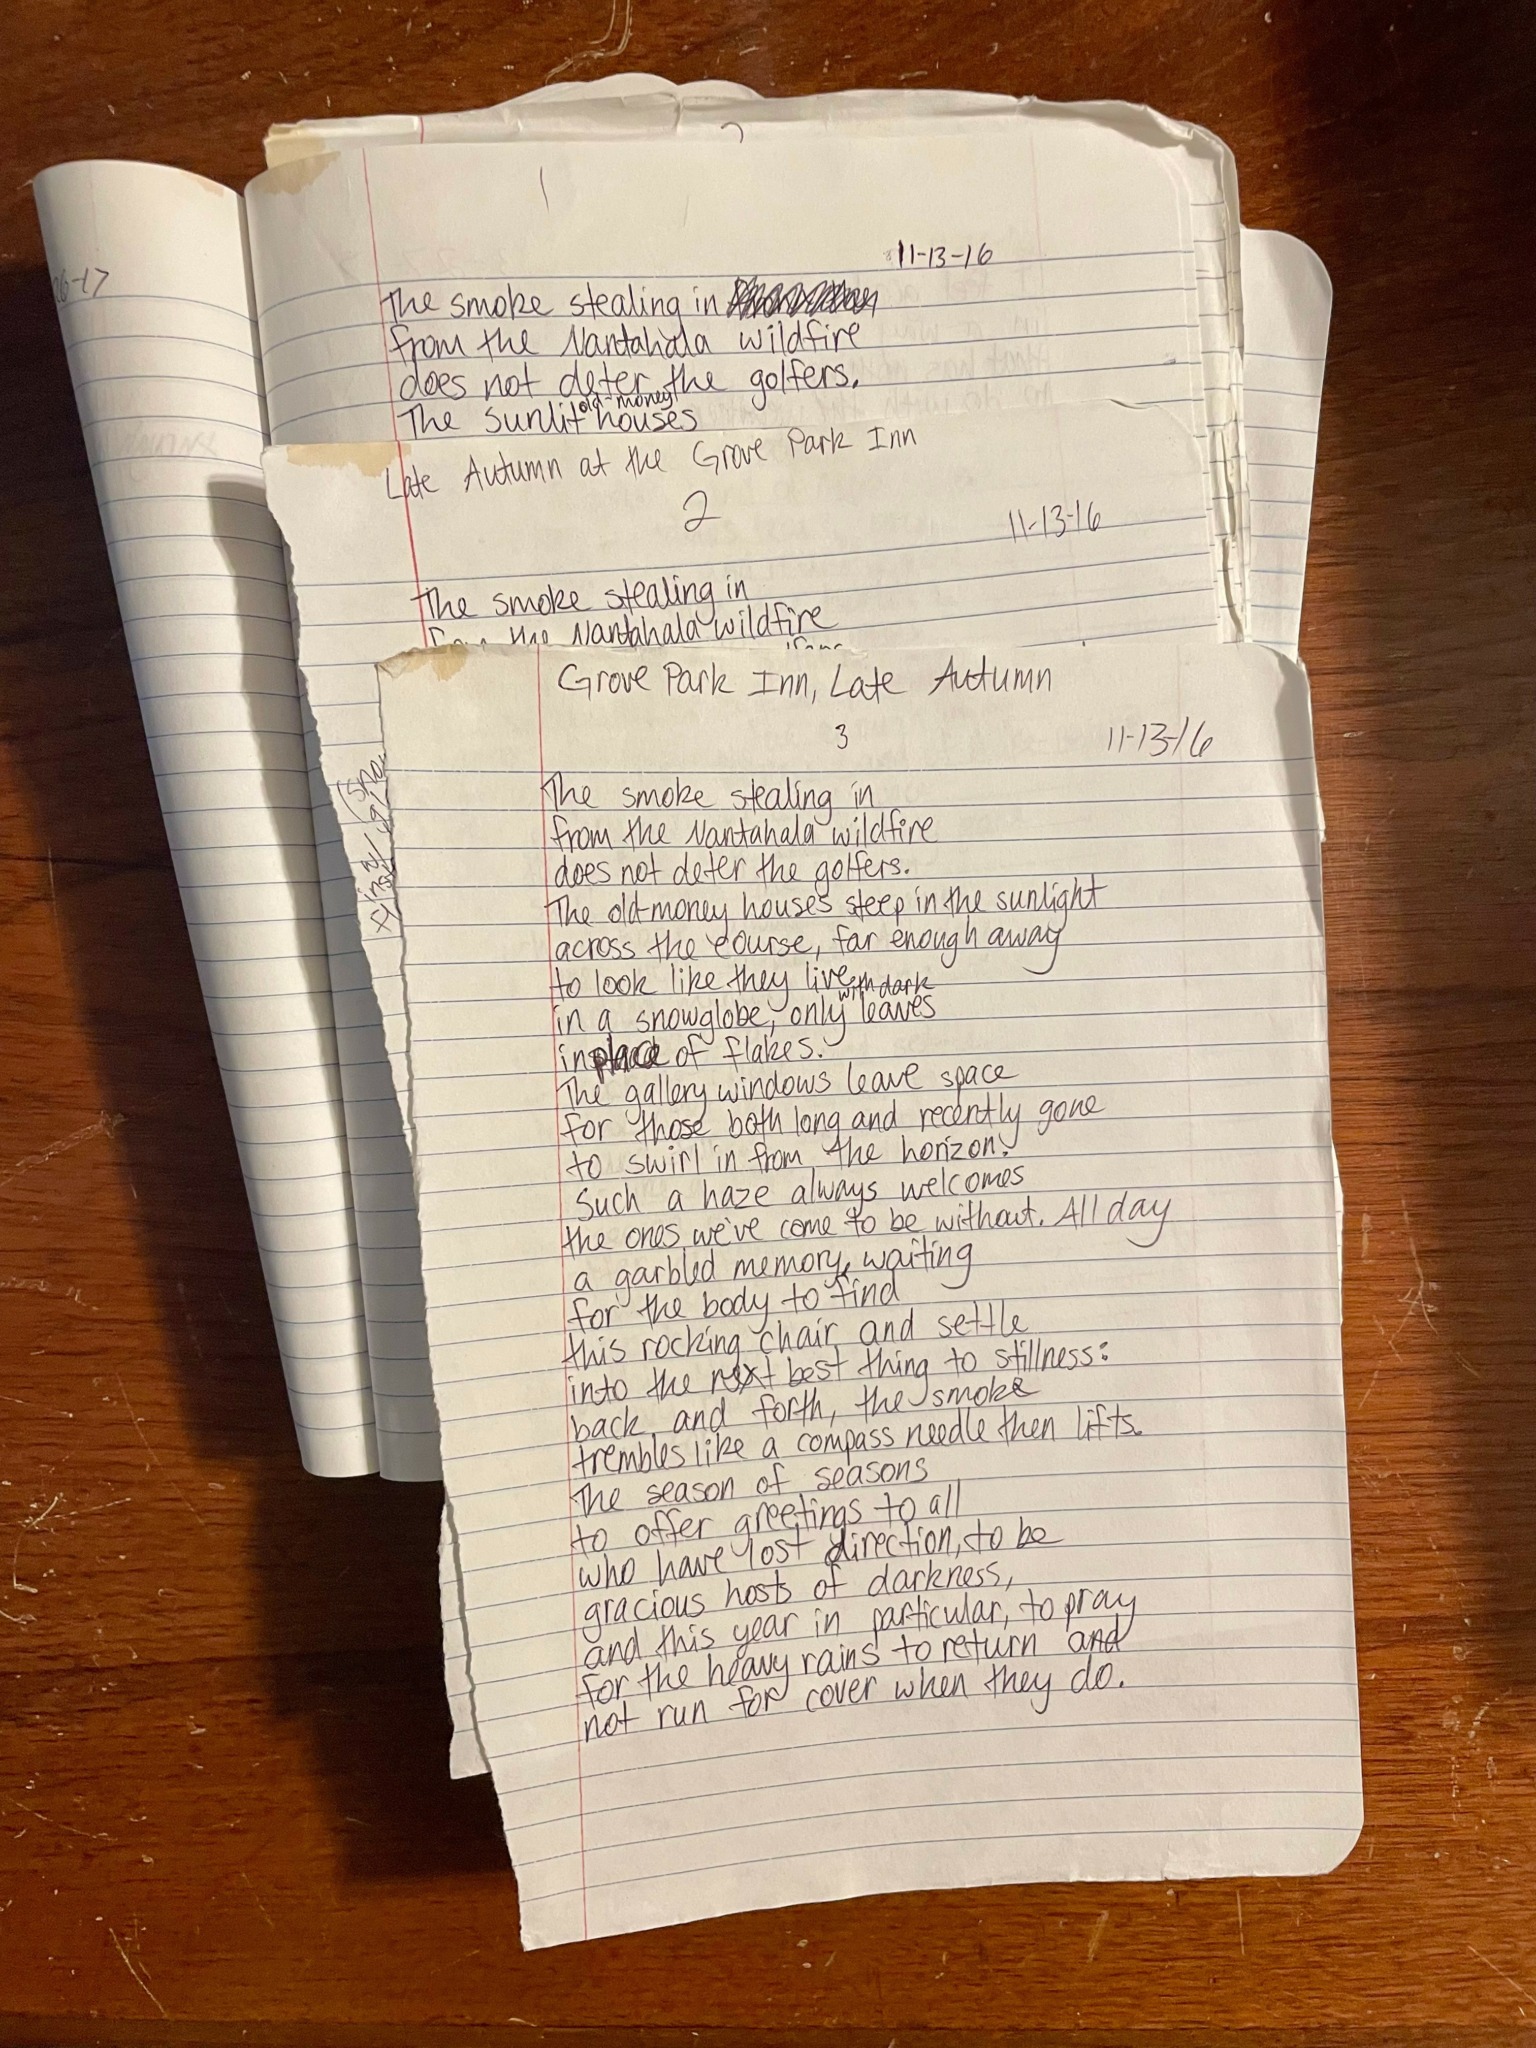 26-17
1
11-13-16
The smoke stealing in
from the Nantahala wildfire
does not deter the golfers.
The sunlit old-money houses
Late Autumn at the Grove Park Inn
2
11-13-16
The smoke stealing in
from the Nantahala wildfire
Grove Park Inn, Late Autumn
3
11-13-16
The smoke stealing in
from the Nantahala wildfire
does not deter the golfers.
The old-money houses steep in the sunlight
across the course, far enough away
to look like they live
in a snowglobe, only with dark leaves
in place of flakes.
The gallery windows leave space
for those both long and recently gone
to swirl in from the horizon.
Such a haze always welcomes
the ones we've come to be without. All day
a garbled memory, waiting
for the body to find
this rocking chair and settle
into the next best thing to stillness:
back and forth, the smoke
trembles like a compass needle then lifts.
The season of seasons
to offer greetings to all
who have lost direction, to be
gracious hosts of darkness,
and this year in particular, to pray
for the heavy rains to return and
not run for cover when they do.